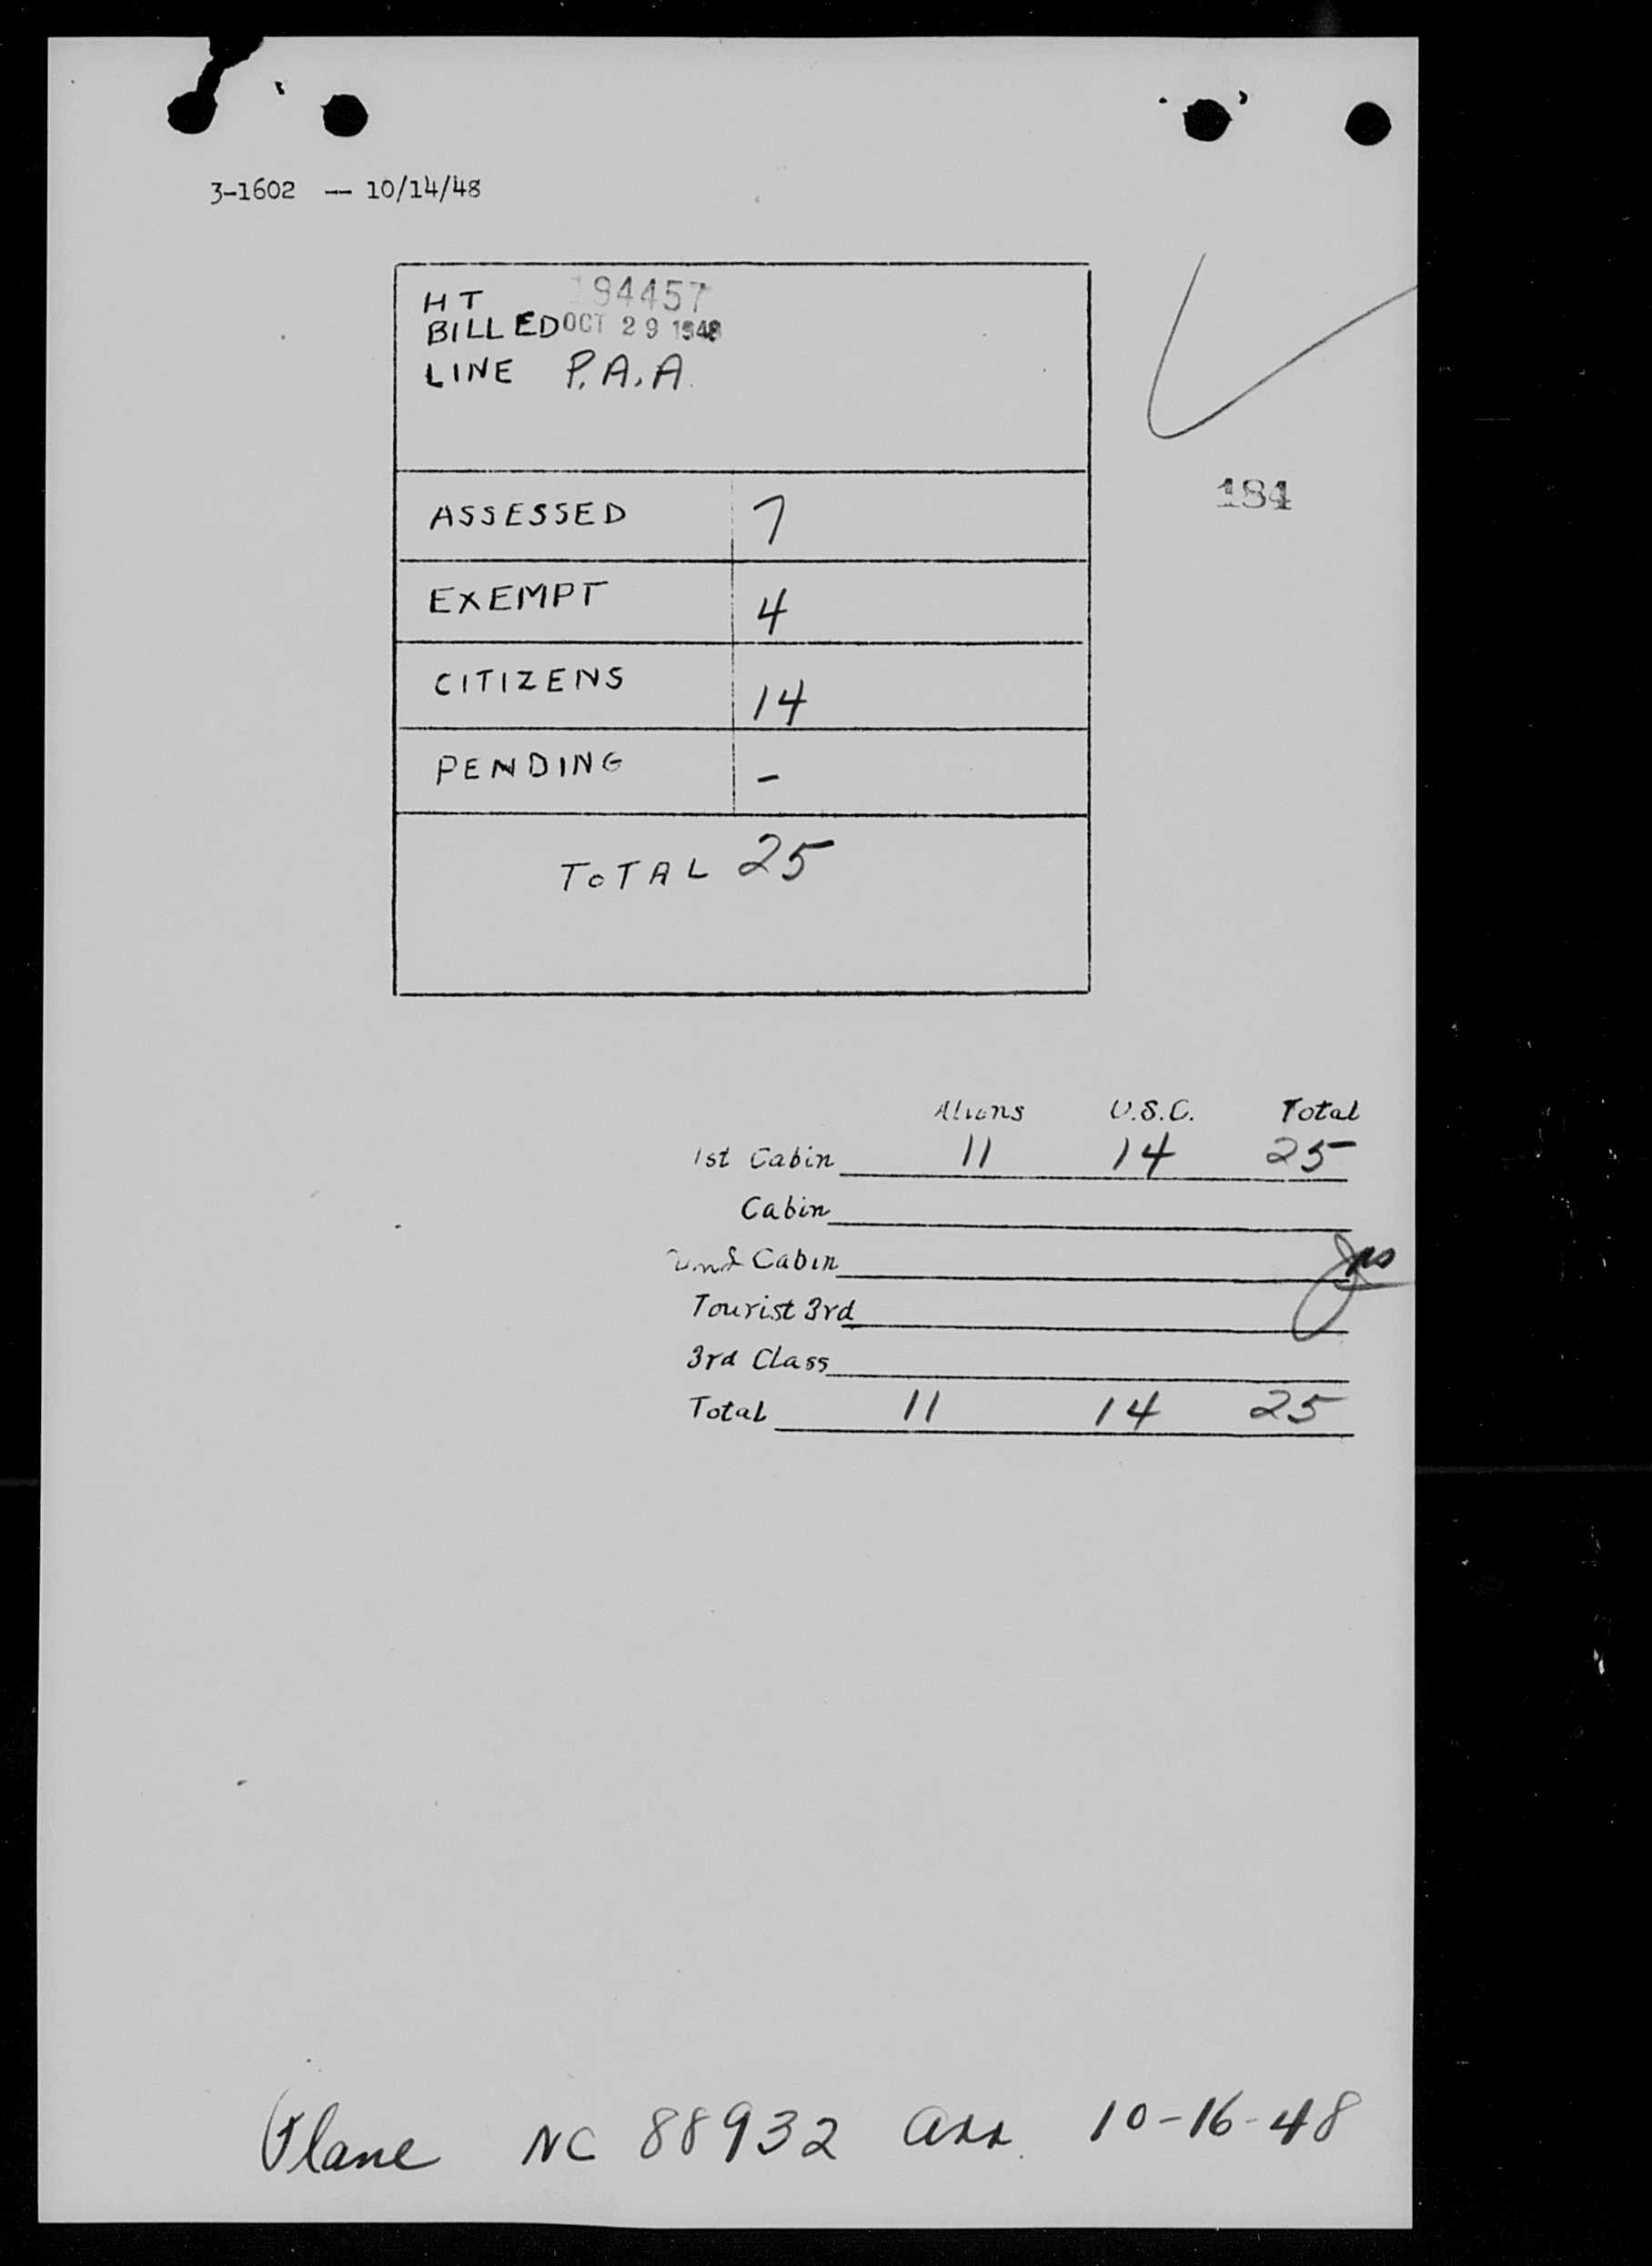 3-1602 -- 10/14/48
HT 194457
BILLED OCT 29 1948
LINE P.A.A.
184
ASSESSED 7
EXEMPT 4
CITIZENS 14
PENDING -
TOTAL 25
Aliens U.S.C. Total
1st Cabin 11 14 25
Cabin
2nd Cabin
Tourist 3rd
3rd Class
Total 11 14 25
Plane NC 88932 arr. 10-16-48